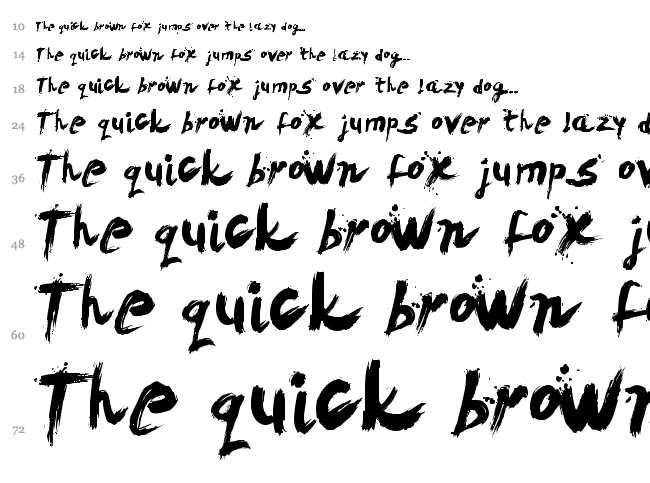 10 The quick brown fox jumps over the lazy dog...
14 The quick brown fox jumps over the lazy dog...
18 The quick brown fox jumps over the lazy dog...
24 The quick brown fox jumps over the lazy d
36 The quick brown fox jumps ov
48 The quick brown fox j
60 The quick brown fo
72 The quick brown